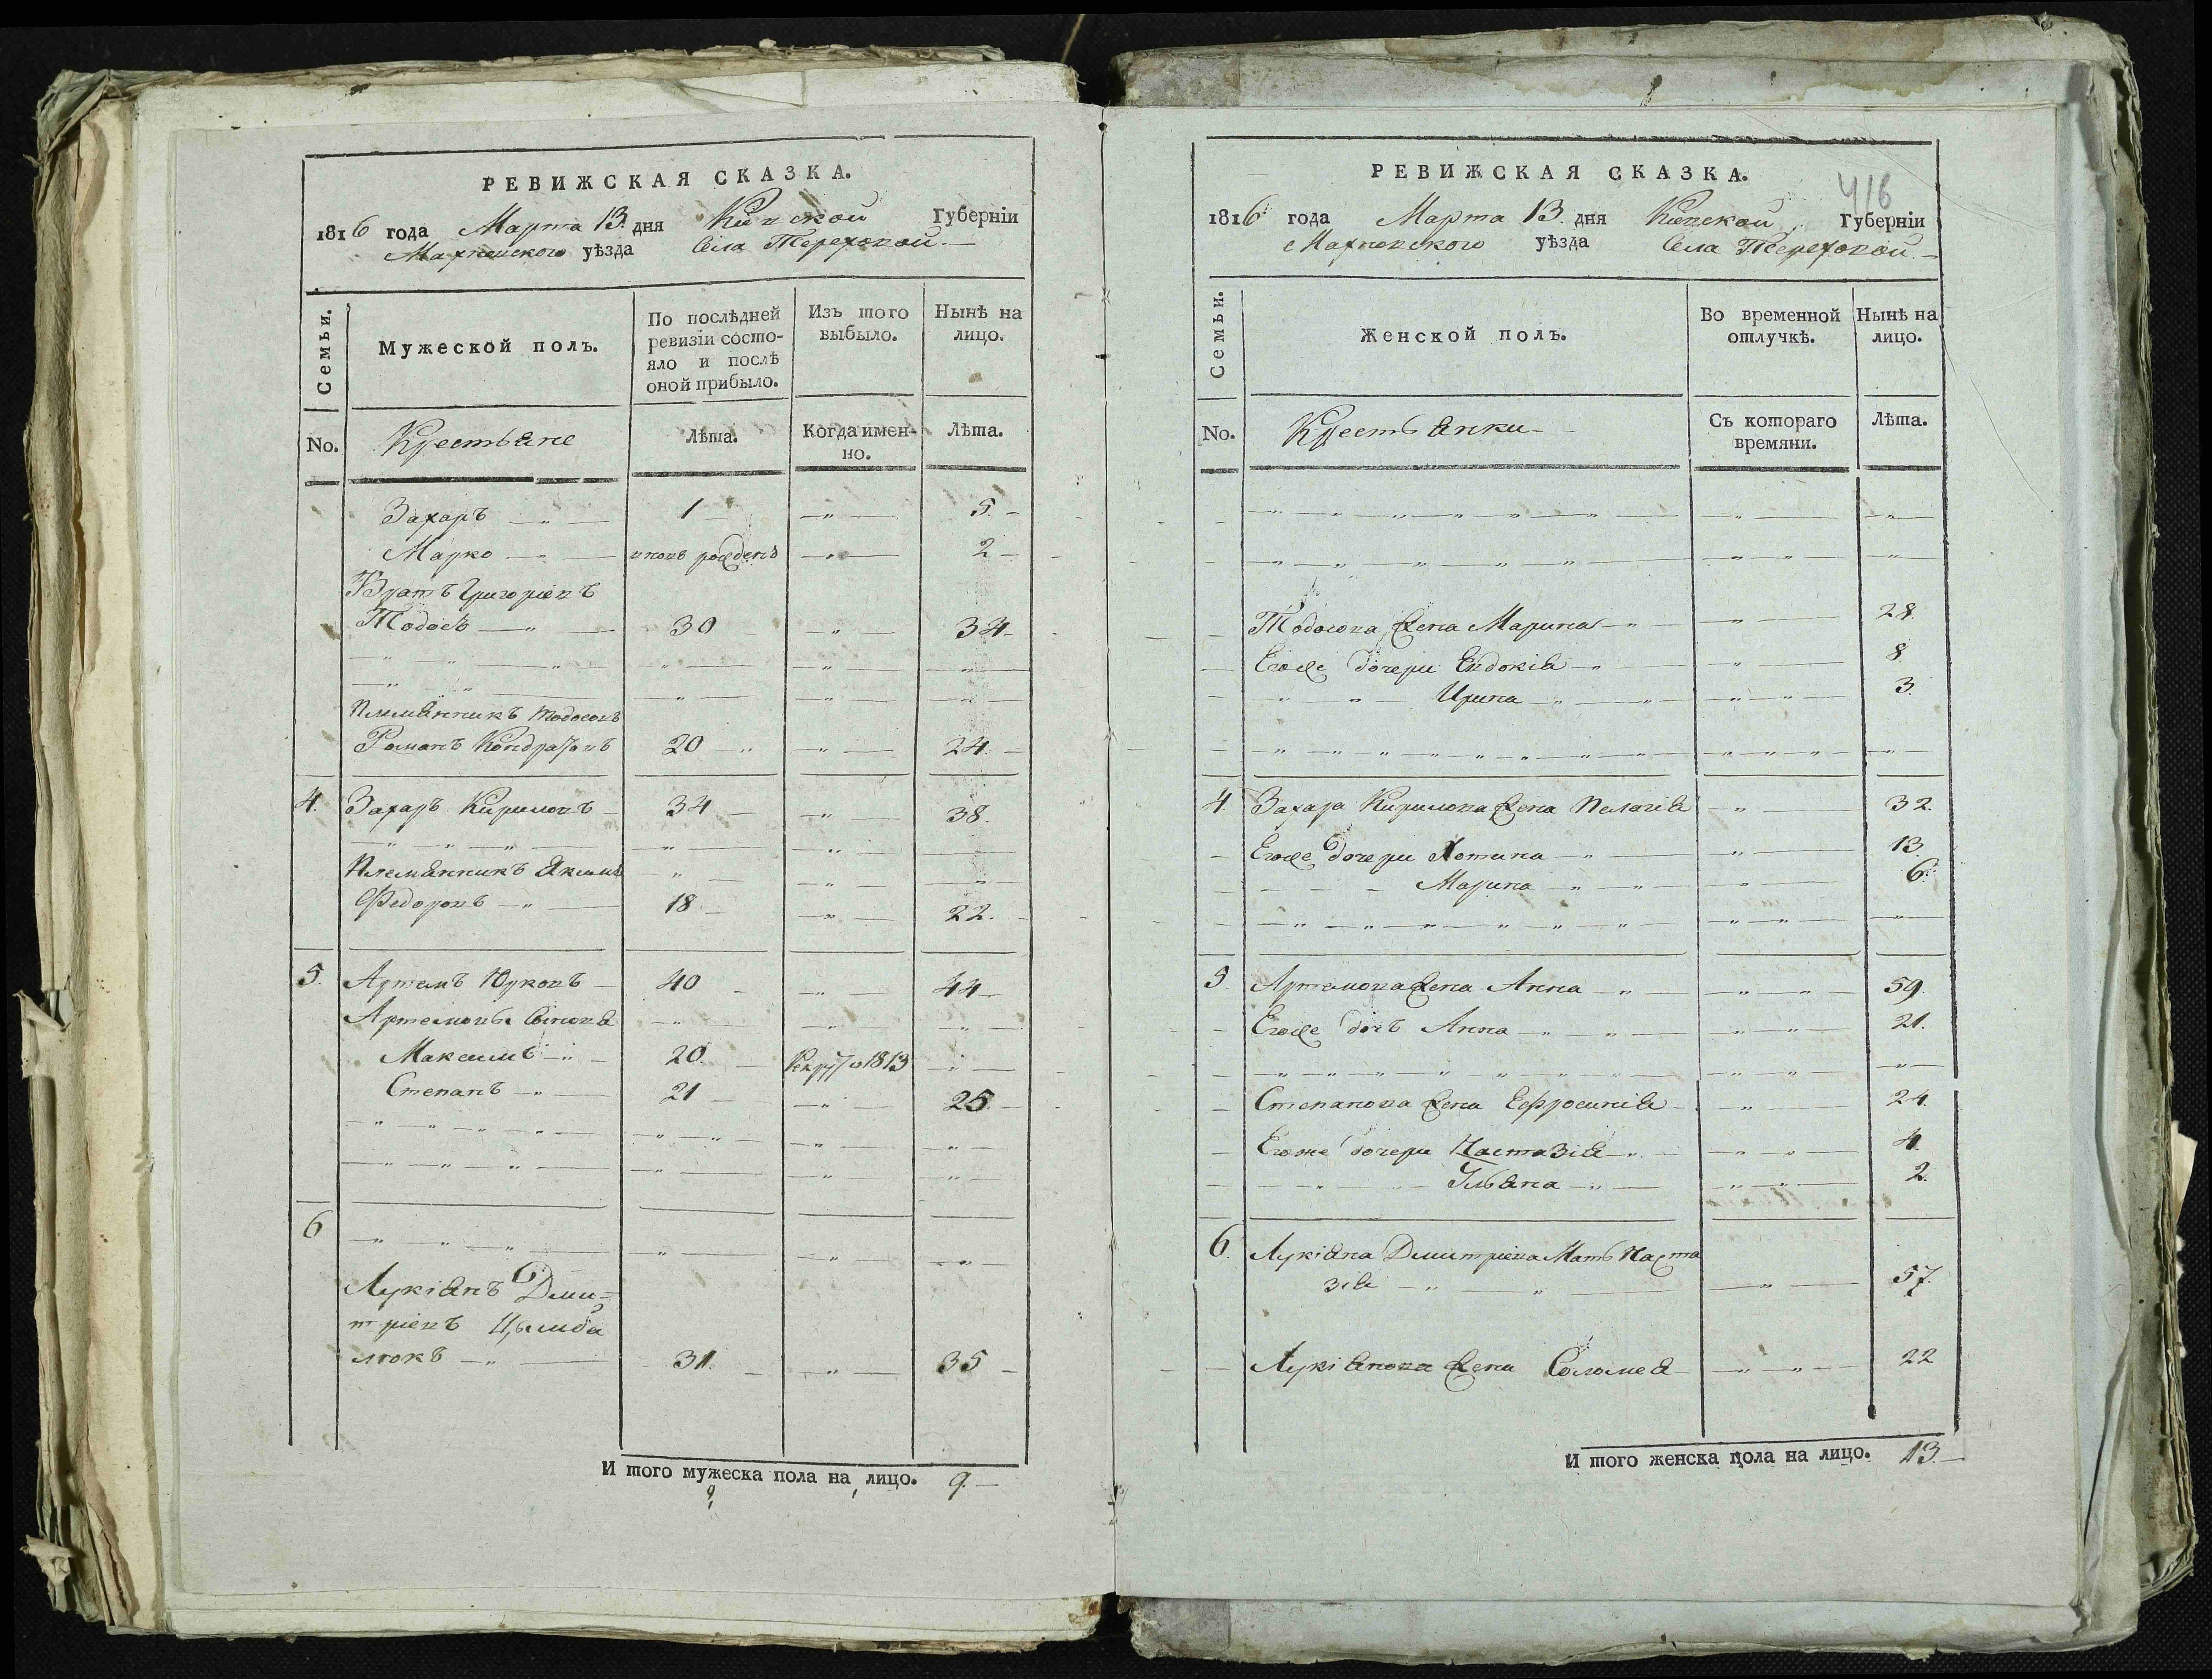 РЕВИЖСКАЯ СКАЗКА.
1816 года Марта 13. дня Киевской Губернїи
Махновского уѣзда Села Тереховой.
Семьи.
Мужеской полъ.
По послѣдней ревизїи состо-
яло и послѣ
оной прибыло.
Изъ того
выбыло.
Нынѣ на
лицо.
No.
Крестьяне
Лѣта.
Когда имен-
но.
Лѣта.
Захаръ 1 5
Марко вновь рожденъ 2
Братъ Григоріевъ
Тодосъ 30 34
Племянникъ Тодосовъ
Романъ Кондратовъ 20 24.
4. Захаръ Кириловъ 34 38.
Племянникъ Якимъ
Федоровъ 18 22.
5. Артемъ Юрковъ 40 44
Артемовы Сыновя
Максимъ 20. 1813
Степанъ 21 25.
6
Лукіянъ Дми-
тріевъ Цымба
люкъ 31. 35
И того мужеска пола на лицо. 9.
416
РЕВИЖСКАЯ СКАЗКА.
1816 года Марта 13 дня Киевской Губернїи
Махновского уѣзда Села Тереховой.
Семьи.
Женской полъ.
Во временной
отлучкѣ.
Нынѣ на
лицо.
No.
Крестьянки
Съ котораго
времяни.
Лѣта.
Тодосова жена Марина 28.
Егоже дочери Евдокія 8
Ирина 3.
4. Захара Кирилова жена Пелагія 32.
Егоже дочери Хотина 13
Марина 6.
5 Артемова жена Анна 59.
Егоже дочь Анна 21.
Степанова жена Ефросинія 24.
Егоже дочери Настазія 4.
Ульяна 2.
6. Лукіяна Дмитріева Мать Наста
зія 57.
Лукіянова жена Соломея 22
И того женска пола на лицо. 13.